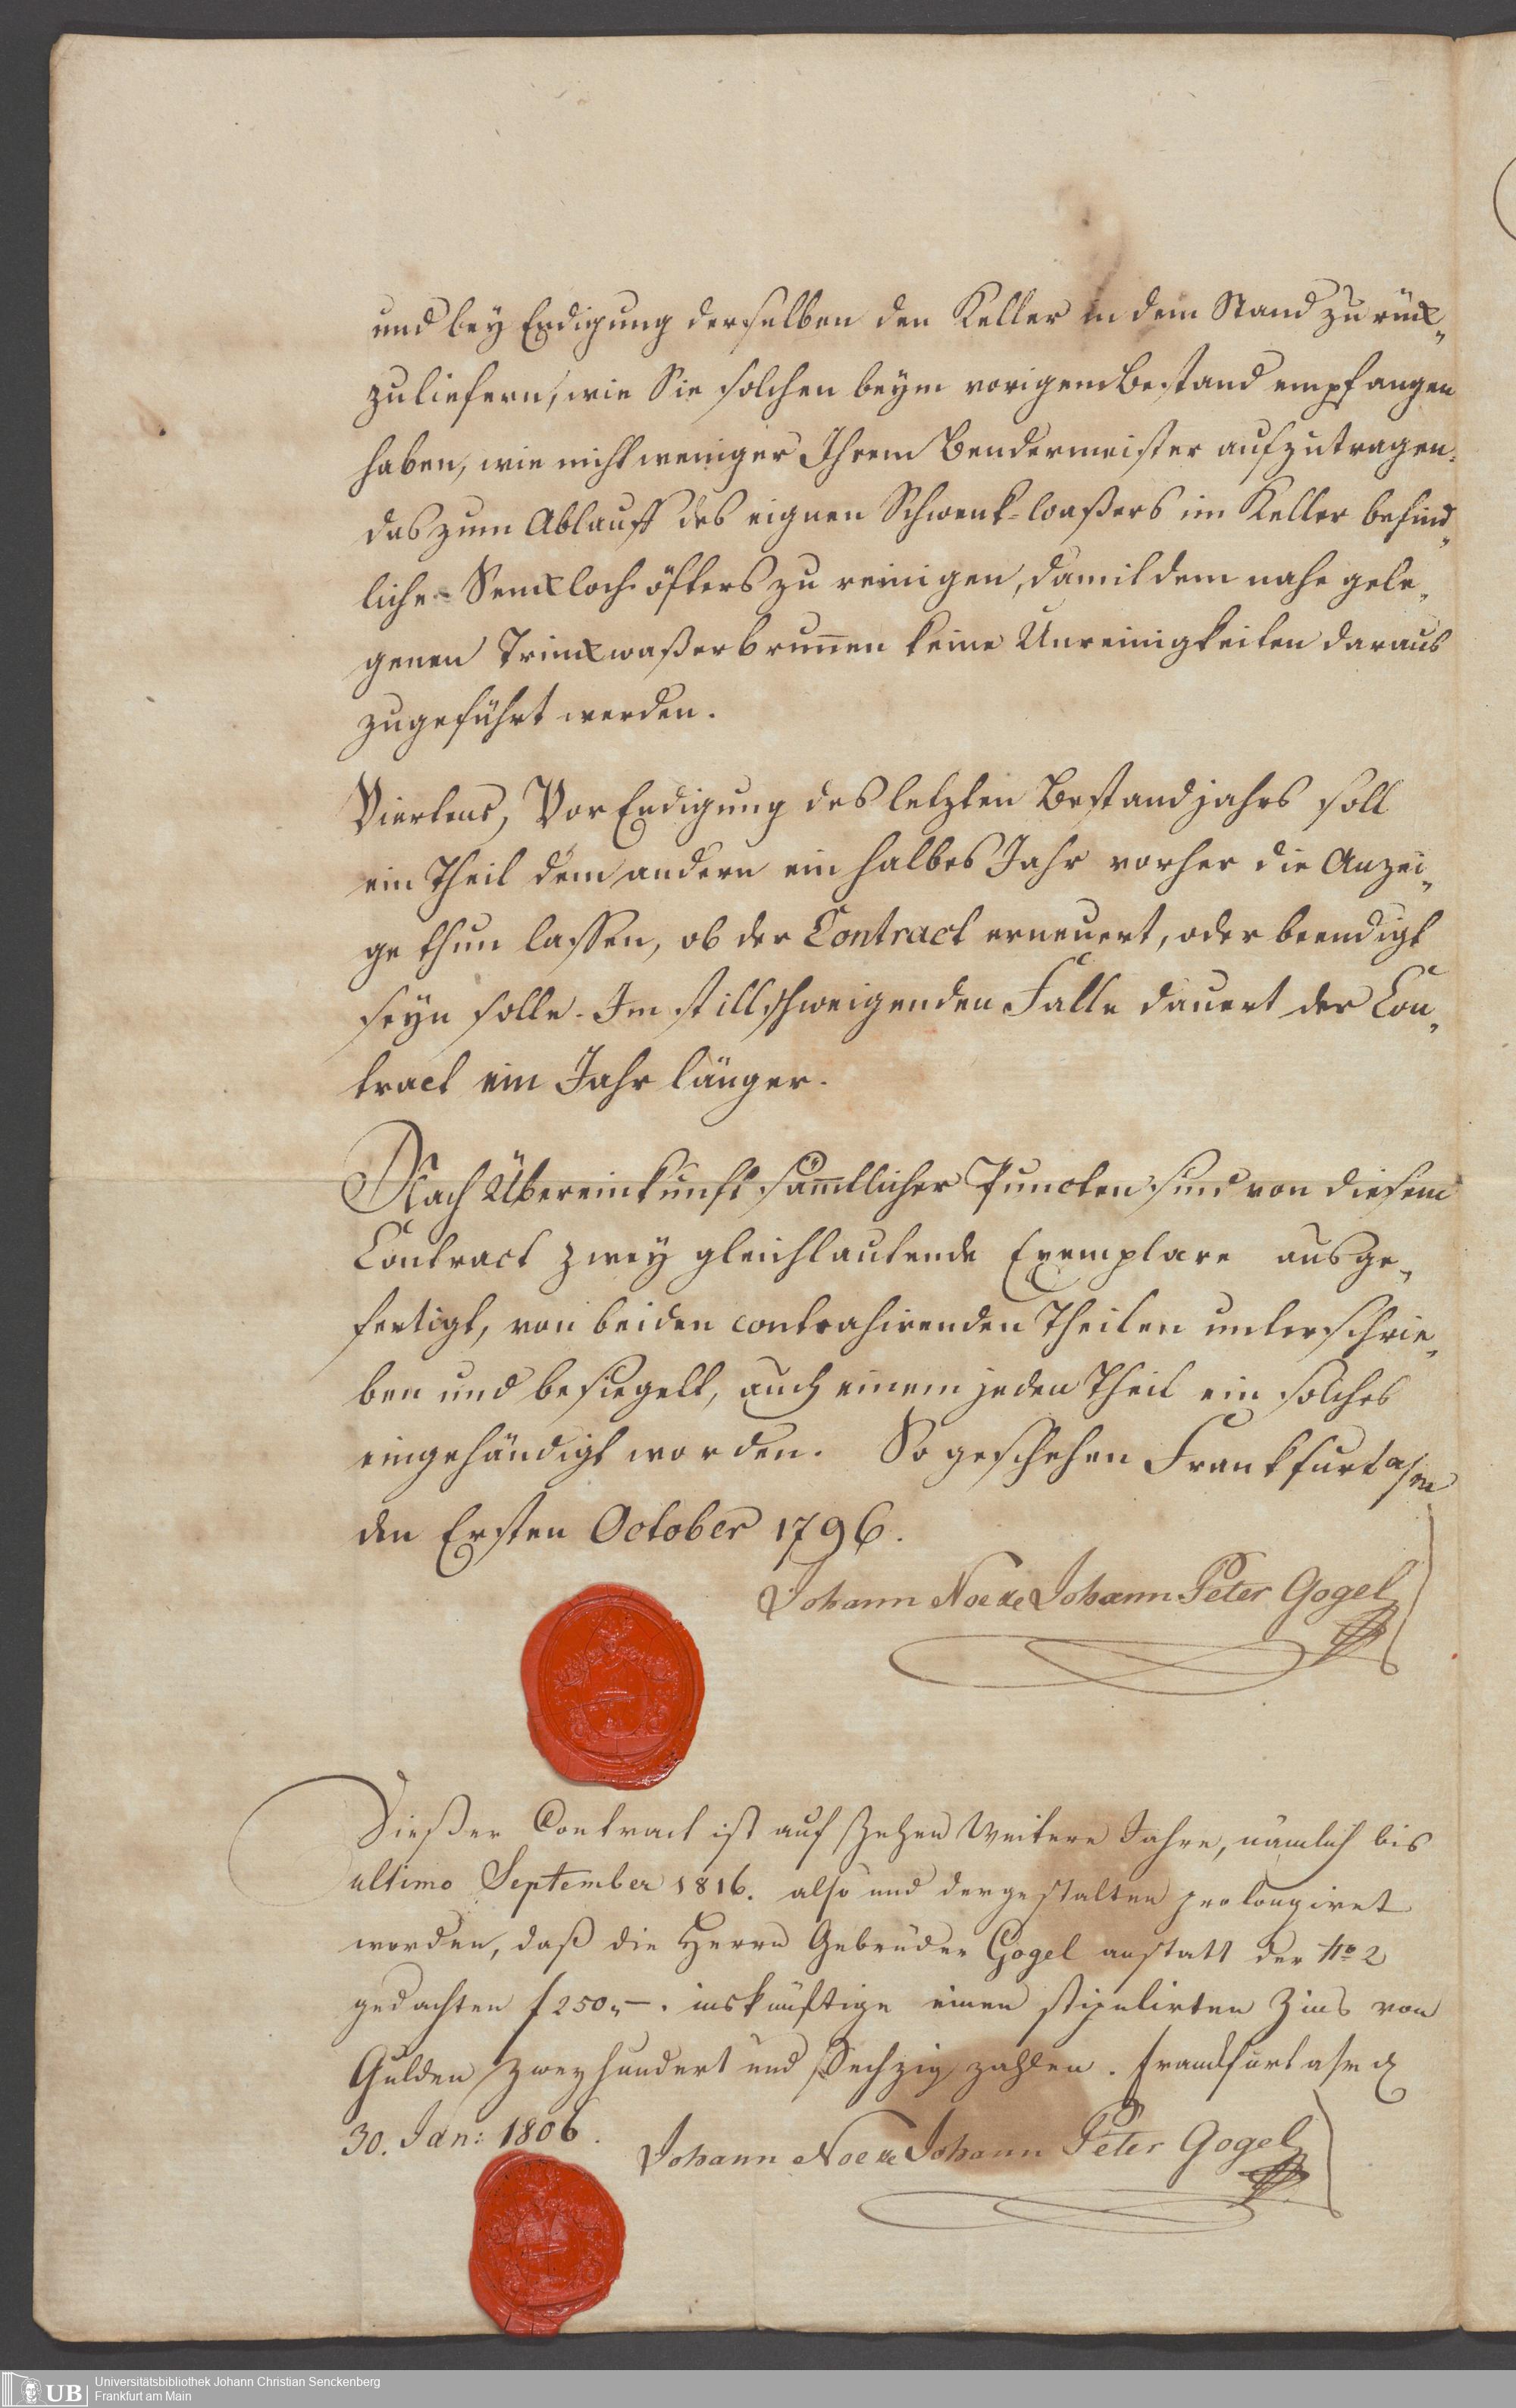 und bey Endigung derselben den Keller in dem Stand zurück„
zuliefern, wie Sie solchen beym vorigem Bestand empfangen
haben, wie nicht weniger Ihrem Bendermeister aufzutragen:
das zum Ablauff des eignen Schwenk-Waßers im Keller befind„
liche Senckloch öfters zu reinigen, damit dem nahe gele„
genen Trinckwaßerbrun̄en keine Unreinigkeiten daraus
zugeführt werden.
Viertens, Vor Endigung des letzten Bestandjahrs soll
ein Theil dem andern ein halbes Jahr vorher die Anzei„
ge thun lassen, ob der Contract erneuert, oder beendigt
seyn solle. Im stillschweigenden Falle dauert der Con„
tract ein Jahr länger.
Nach Übereinkunft säm̄tlicher Puncten sind von diesem
Contract zwey gleichlautende Exemplare ausge„
fertigt, von beiden contrahirenden Theilen unterschrie„
ben und besiegelt, auch einem jeden Theil ein solches
eingehändigt worden. So geschehen Frankfurt a/m
den Ersten October 1796.
Johann Noe & Johann Peter Gogel
Dießer Contract ist auf Zehen Weitere Jahre, nämlich bis
ultimo September 1816. also und dergestalten prolongiret
worden, daß die Herrn Gebrüder Gogel anstatt der No 2
gedachten f 250,,–. inskünftige einen stipulirten Zins von
Gulden Zweyhundert und Sechzig zahlen. Franckfurt a/m d.
30. Jan: 1806.
Johann Noe & Johann Peter Gogel
UB
Universitätsbibliothek Johann Christian Senckenberg
Frankfurt am Main